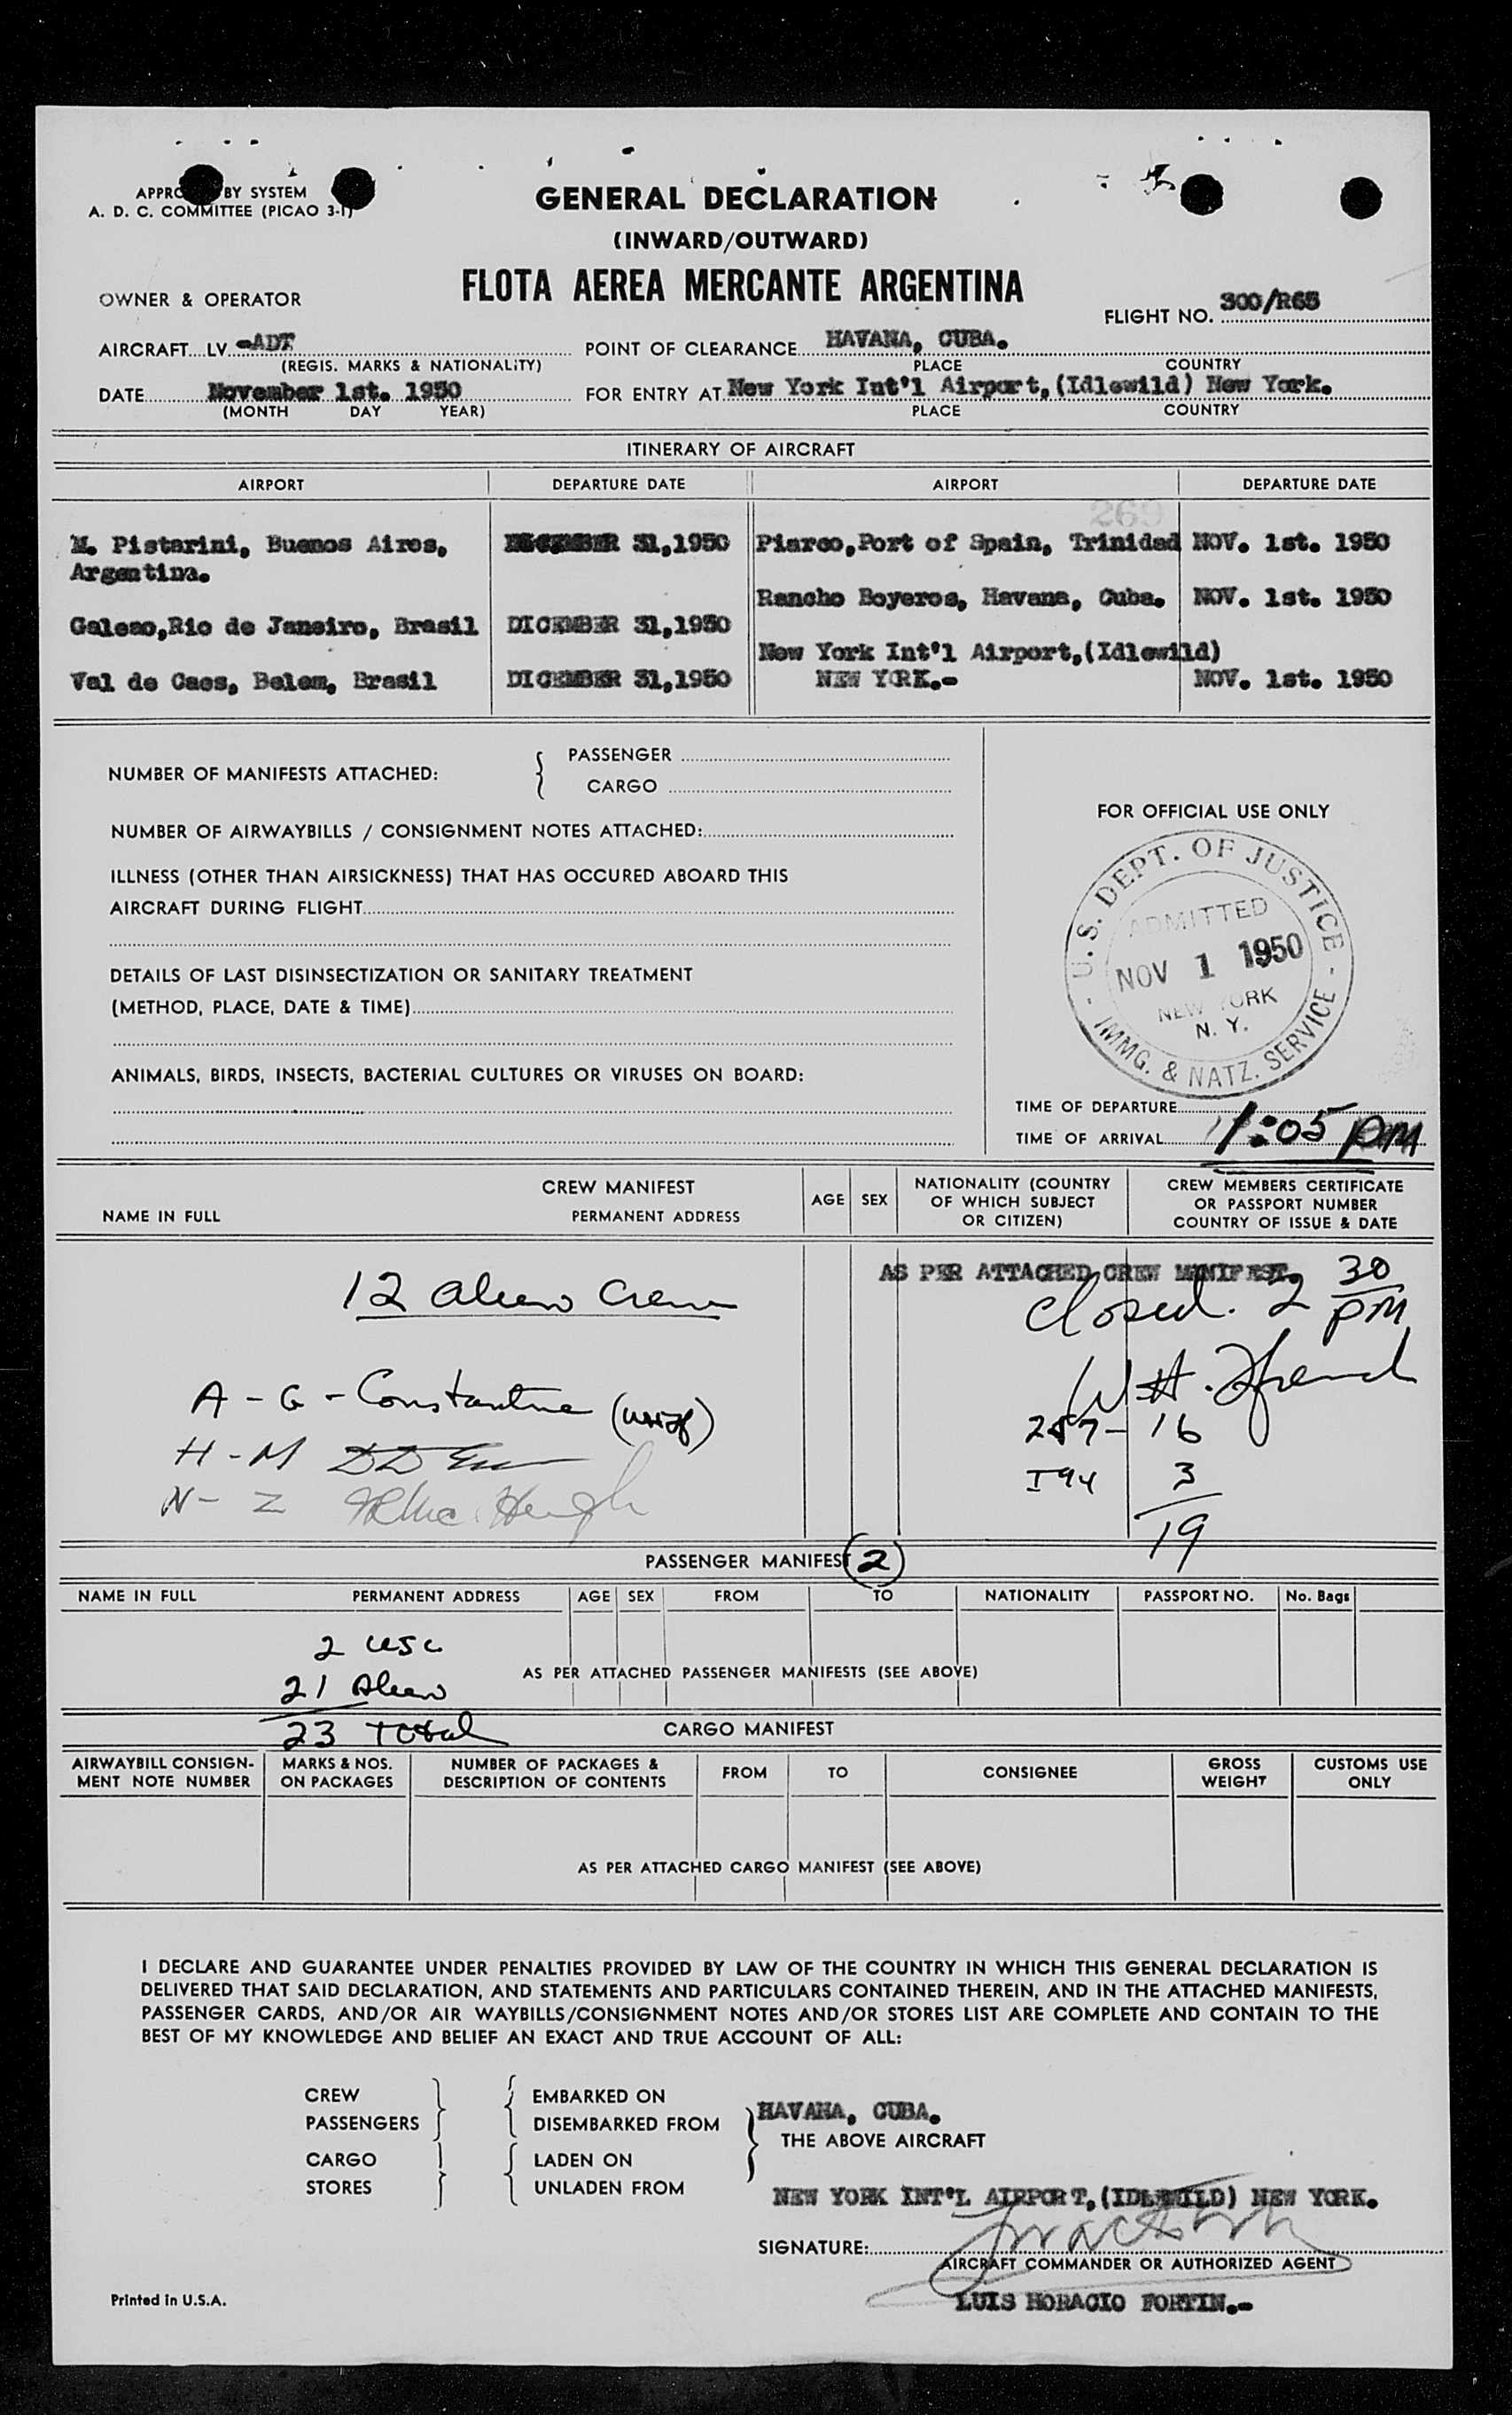 APPRO BY SYSTEM
A. D. C. COMMITTEE (PICAO 3-1)
GENERAL DECLARATION
(INWARD/OUTWARD)
FLOTA AEREA MERCANTE ARGENTINA
OWNER & OPERATOR
FLIGHT NO. 300/R65
AIRCRAFT LV -ADT
POINT OF CLEARANCE HAVANA, CUBA.
(REGIS. MARKS & NATIONALITY)
PLACE COUNTRY
DATE November 1st. 1950
FOR ENTRY AT New York Int'l Airport,(Idlewild) New York.
(MONTH DAY YEAR)
PLACE COUNTRY
ITINERARY OF AIRCRAFT
AIRPORT DEPARTURE DATE AIRPORT DEPARTURE DATE
269
M. Pistarini, Buenos Aires, 31,1950 Piarco,Port of Spain, Trinidad NOV. 1st. 1950
Argentina.
Rancho Boyeros, Havana, Cuba. NOV. 1st. 1950
Galeao,Rio de Janeiro, Brasil DICEMBER 31,1950
New York Int'l Airport,(Idlewild)
Val de Caes, Belem, Brasil DICEMBER 31,1950 NEW YORK.- NOV. 1st. 1950
NUMBER OF MANIFESTS ATTACHED: PASSENGER
CARGO
NUMBER OF AIRWAYBILLS / CONSIGNMENT NOTES ATTACHED:
ILLNESS (OTHER THAN AIRSICKNESS) THAT HAS OCCURED ABOARD THIS
AIRCRAFT DURING FLIGHT
DETAILS OF LAST DISINSECTIZATION OR SANITARY TREATMENT
(METHOD, PLACE, DATE & TIME)
ANIMALS, BIRDS, INSECTS, BACTERIAL CULTURES OR VIRUSES ON BOARD:
FOR OFFICIAL USE ONLY
U.S. DEPT. OF JUSTICE
ADMITTED
NOV 1 1950
NEW YORK
N. Y.
IMMG. & NATZ. SERVICE
TIME OF DEPARTURE
TIME OF ARRIVAL 1:05 PM
CREW MANIFEST
NAME IN FULL PERMANENT ADDRESS
AGE SEX
NATIONALITY (COUNTRY
OF WHICH SUBJECT
OR CITIZEN)
CREW MEMBERS CERTIFICATE
OR PASSPORT NUMBER
COUNTRY OF ISSUE & DATE
AS PER ATTACHED CREW MANIFEST.
12 alien Crew
Closed. 2 30 PM
A - G - Constantine
W.H. French
H - M
257- 16
N - Z
I94 3
19
PASSENGER MANIFEST 2
NAME IN FULL PERMANENT ADDRESS AGE SEX FROM TO NATIONALITY PASSPORT NO. No. Bags
2 usc
21 Alien
AS PER ATTACHED PASSENGER MANIFESTS (SEE ABOVE)
23 Total
CARGO MANIFEST
AIRWAYBILL CONSIGN-
MENT NOTE NUMBER
MARKS & NOS.
ON PACKAGES
NUMBER OF PACKAGES &
DESCRIPTION OF CONTENTS
FROM TO CONSIGNEE
GROSS
WEIGHT
CUSTOMS USE
ONLY
AS PER ATTACHED CARGO MANIFEST (SEE ABOVE)
I DECLARE AND GUARANTEE UNDER PENALTIES PROVIDED BY LAW OF THE COUNTRY IN WHICH THIS GENERAL DECLARATION IS
DELIVERED THAT SAID DECLARATION, AND STATEMENTS AND PARTICULARS CONTAINED THEREIN, AND IN THE ATTACHED MANIFESTS,
PASSENGER CARDS, AND/OR AIR WAYBILLS/CONSIGNMENT NOTES AND/OR STORES LIST ARE COMPLETE AND CONTAIN TO THE
BEST OF MY KNOWLEDGE AND BELIEF AN EXACT AND TRUE ACCOUNT OF ALL:
CREW EMBARKED ON
PASSENGERS DISEMBARKED FROM
HAVANA, CUBA.
THE ABOVE AIRCRAFT
CARGO LADEN ON
STORES UNLADEN FROM
NEW YORK INT'L AIRPORT,(IDLEWILD) NEW YORK.
SIGNATURE:
AIRCRAFT COMMANDER OR AUTHORIZED AGENT
LUIS HORACIO FORTIN.-
Printed in U.S.A.